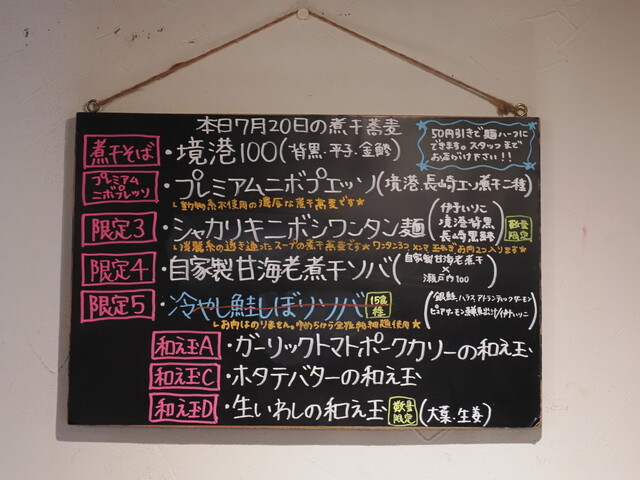 本日7月20日の煮干蕎麦
50円引きで麺ハーフに
できます。スタッフまで
お声がけ下さい!!
煮干そば ・境港100(背黒・平子・金鯵)
プレミアム
ニボプレッソ ・プレミアムニボプエッソ(境港、長崎エソ煮干二種)
動物系不使用の濃厚な煮干蕎麦です☆
限定3 ・シャカリキニボシワンタン麺(伊予いりこ 境港背黒 長崎黒鯵) 数量限定
スープの煮干蕎麦です☆ワンタン3コ
限定4 ・自家製甘海老煮干ソバ(自家製甘海老煮干×瀬戸内100)
限定5 ・冷やし鮭しぼりソバ 15名様
(銀鮭、ハラス、アトランティックサーモン
お肉はのりません。
和え玉A ・ガーリックトマトポークカリーの和え玉
和え玉C ・ホタテバターの和え玉
和え玉D ・生いわしの和え玉 数量限定 (大葉、生姜)